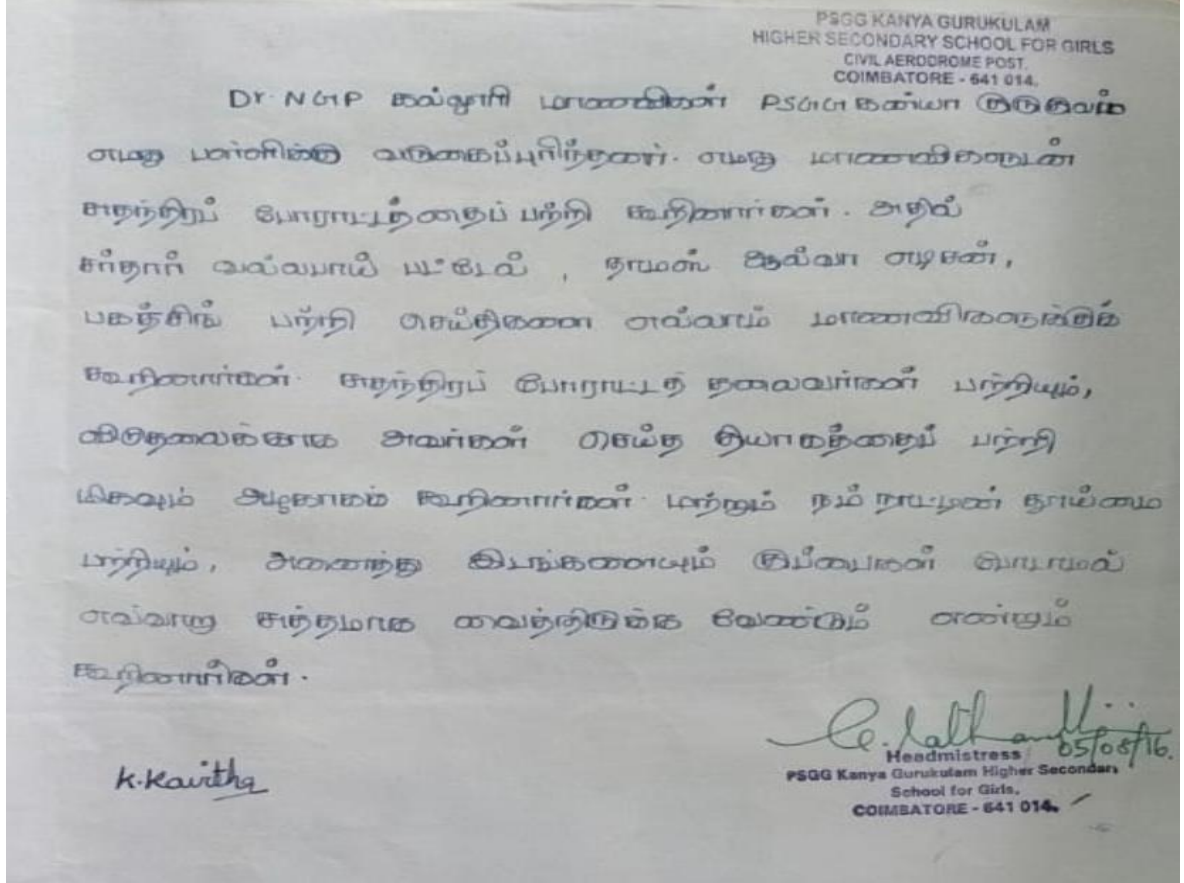 PSGG KANYA GURUKULAM
HIGHER SECONDARY SCHOOL FOR GIRLS
CIVIL AERODROME POST,
COIMBATORE - 641 014.
Dr. NGP கல்லூரி மாணவிகள் PSGG கன்யா குருகுலம்
எமது பள்ளிக்கு வருகைப்புரிந்தனர். எமது மாணவிகளுடன்
சுதந்திரப் போராட்டத்தைப் பற்றி கூறினார்கள். அதில்
சர்தார் வல்லபாய் பட்டேல், தாமஸ் ஆல்வா எடிசன்,
பகத்சிங் பற்றி செய்திகளை எல்லாம் மாணவிகளுக்குக்
கூறினார்கள். சுதந்திரப் போராட்டத் தலைவர்கள் பற்றியும்,
விடுதலைக்காக அவர்கள் செய்த தியாகத்தைப் பற்றி
மிகவும் அழகாகம் கூறினார்கள். மற்றும் நம் நாட்டின் தூய்மை
பற்றியும், அனைத்து இடங்களையும் குப்பைகள் போடாமல்
எவ்வாறு சுத்தமாக வைத்திருக்க வேண்டும் என்றும்
கூறினார்கள்.
05/08/16.
Headmistress
PSGG Kanya Gurukulam Higher Secondary
School for Girls,
COIMBATORE - 641 014.
K. Kavitha